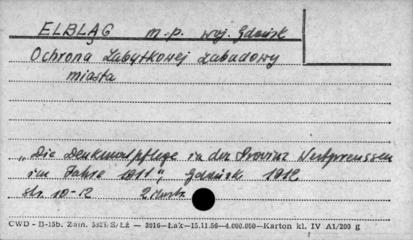 ELBLĄG m.p. woj. Gdańsk
Ochrona Zabytkowej zabudowy
miasta
„Die Denkmalpflege in der Provinz Westpreussen
im Jahre 1911", Gdańsk 1912
str. 10-12 2 ilustr.
CWD - B-15b. Zam. S/Łż — 3016—Łak—15.11.56—4.000.000—Karton kl. IV A1/200 g